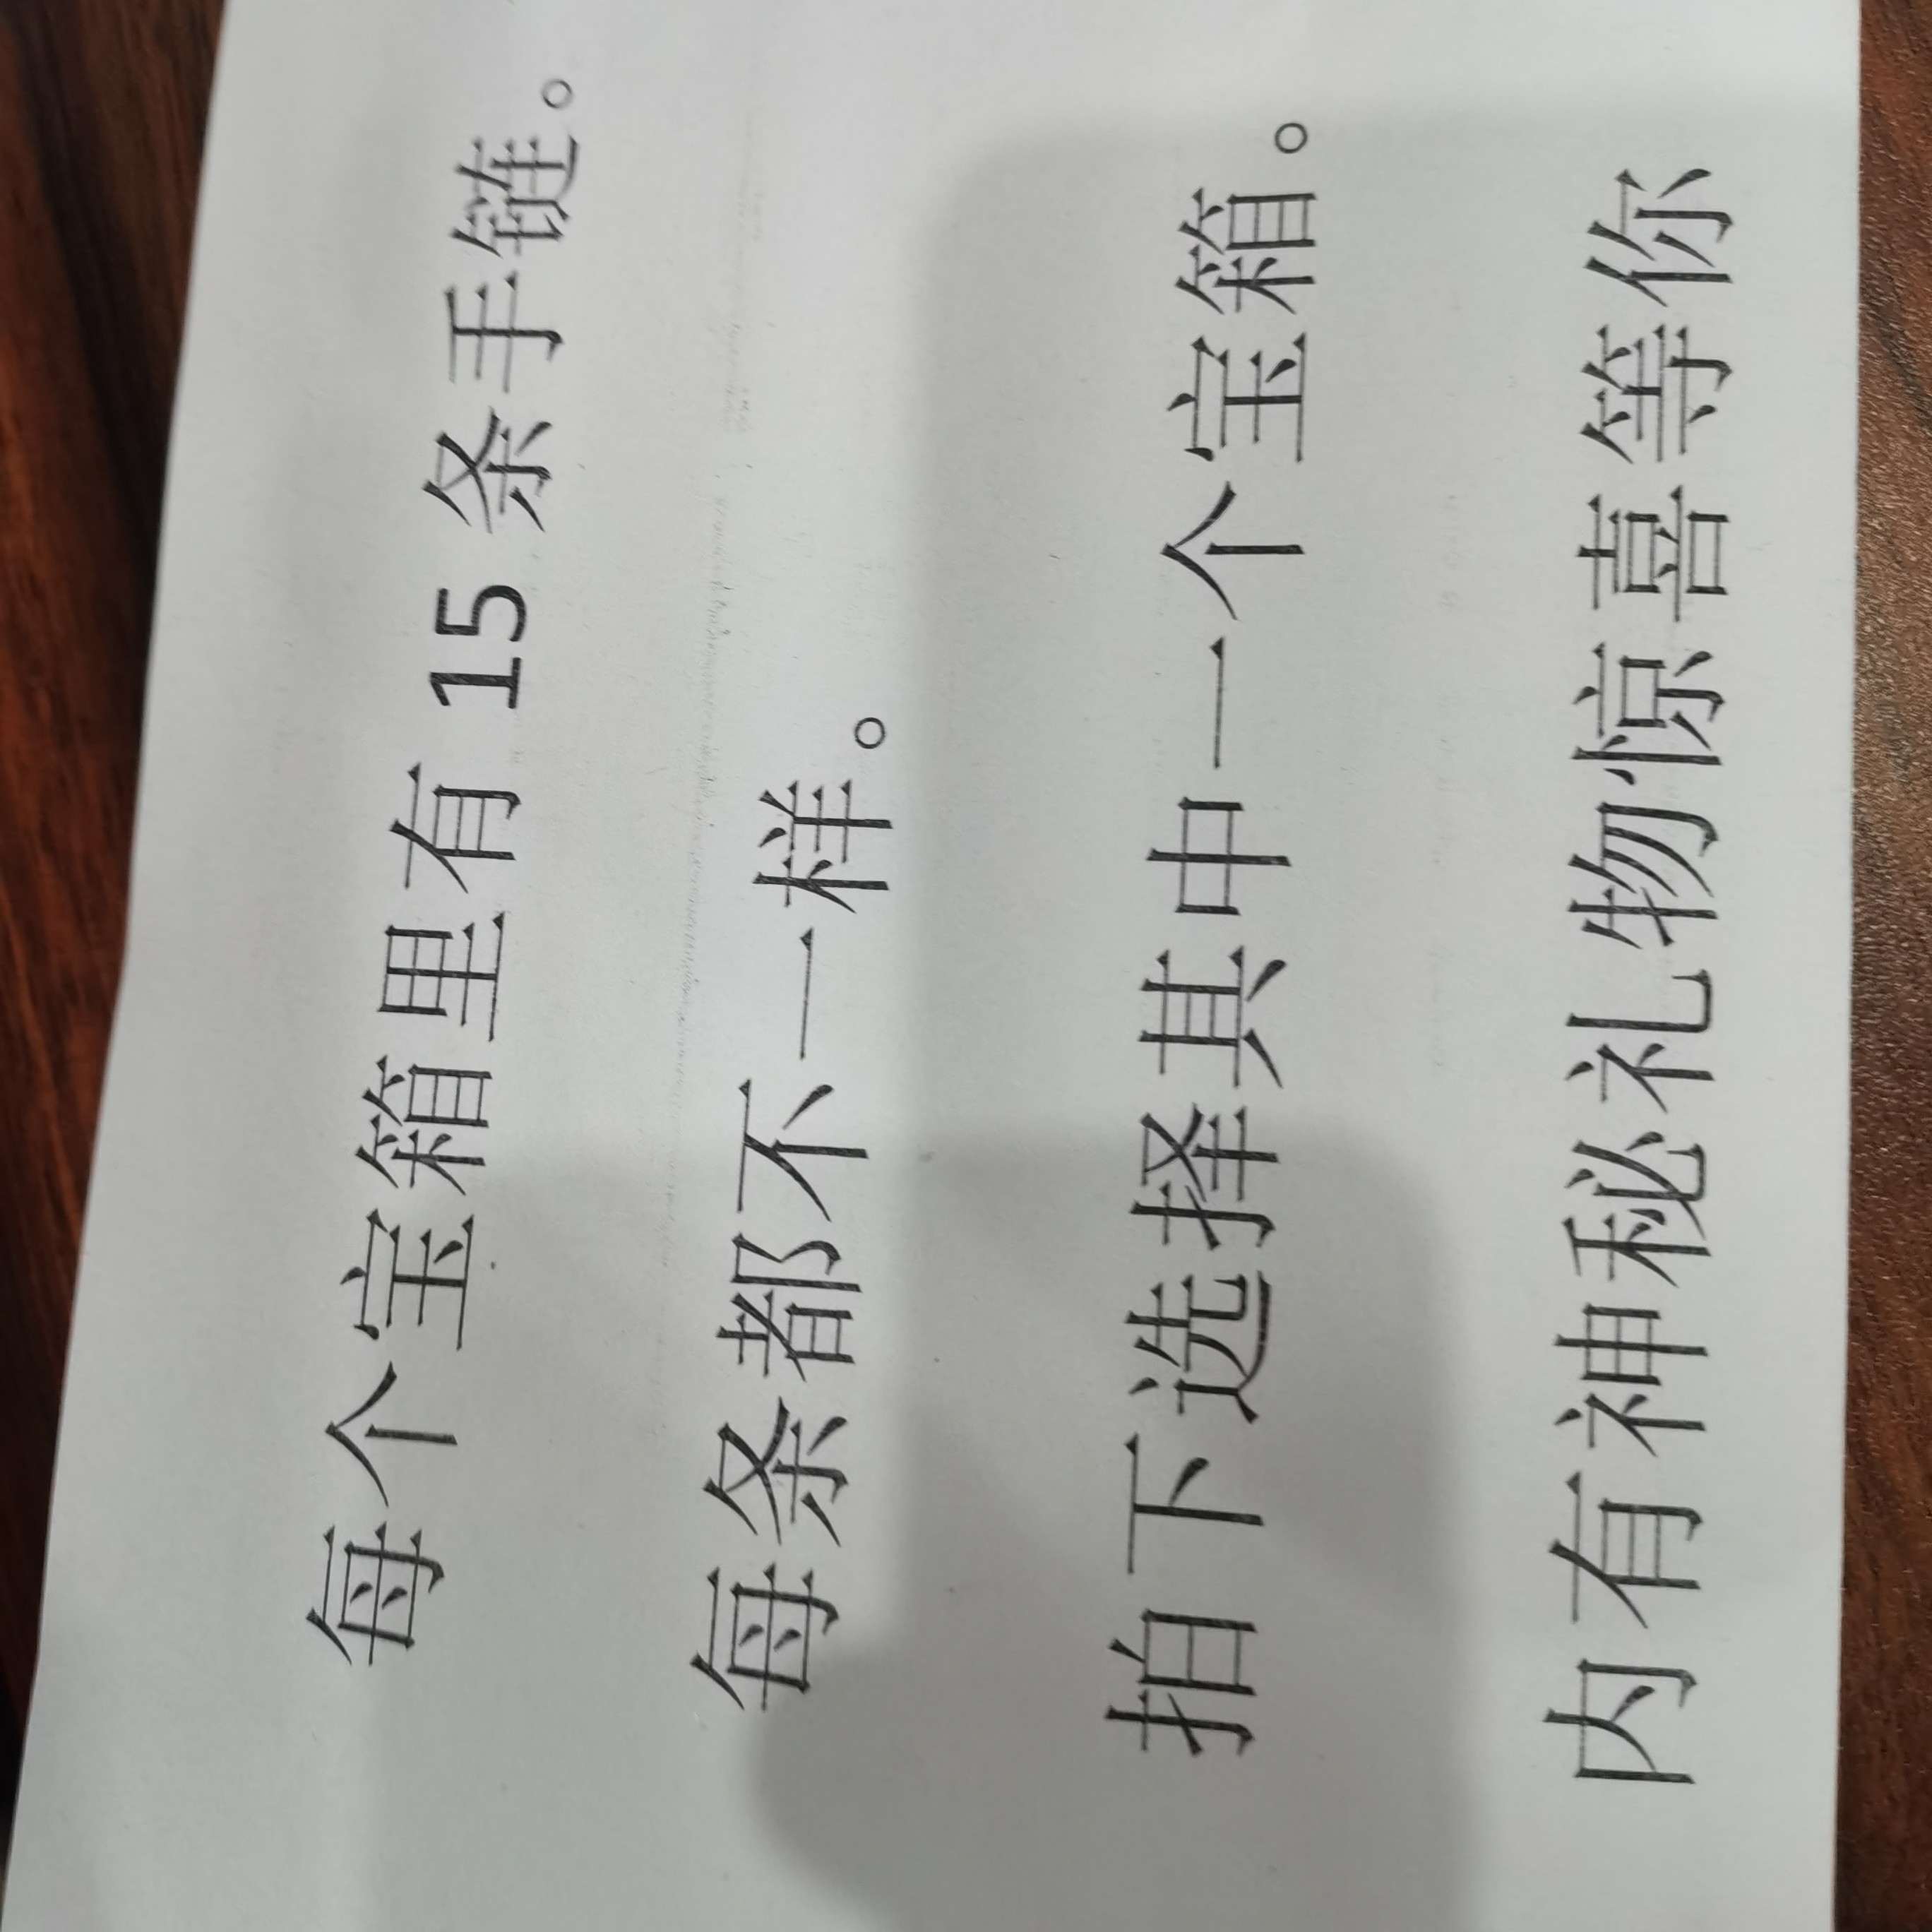 每个宝箱里有 15 条手链。
每条都不一样。
拍下选择其中一个宝箱。
内有神秘礼物惊喜等你